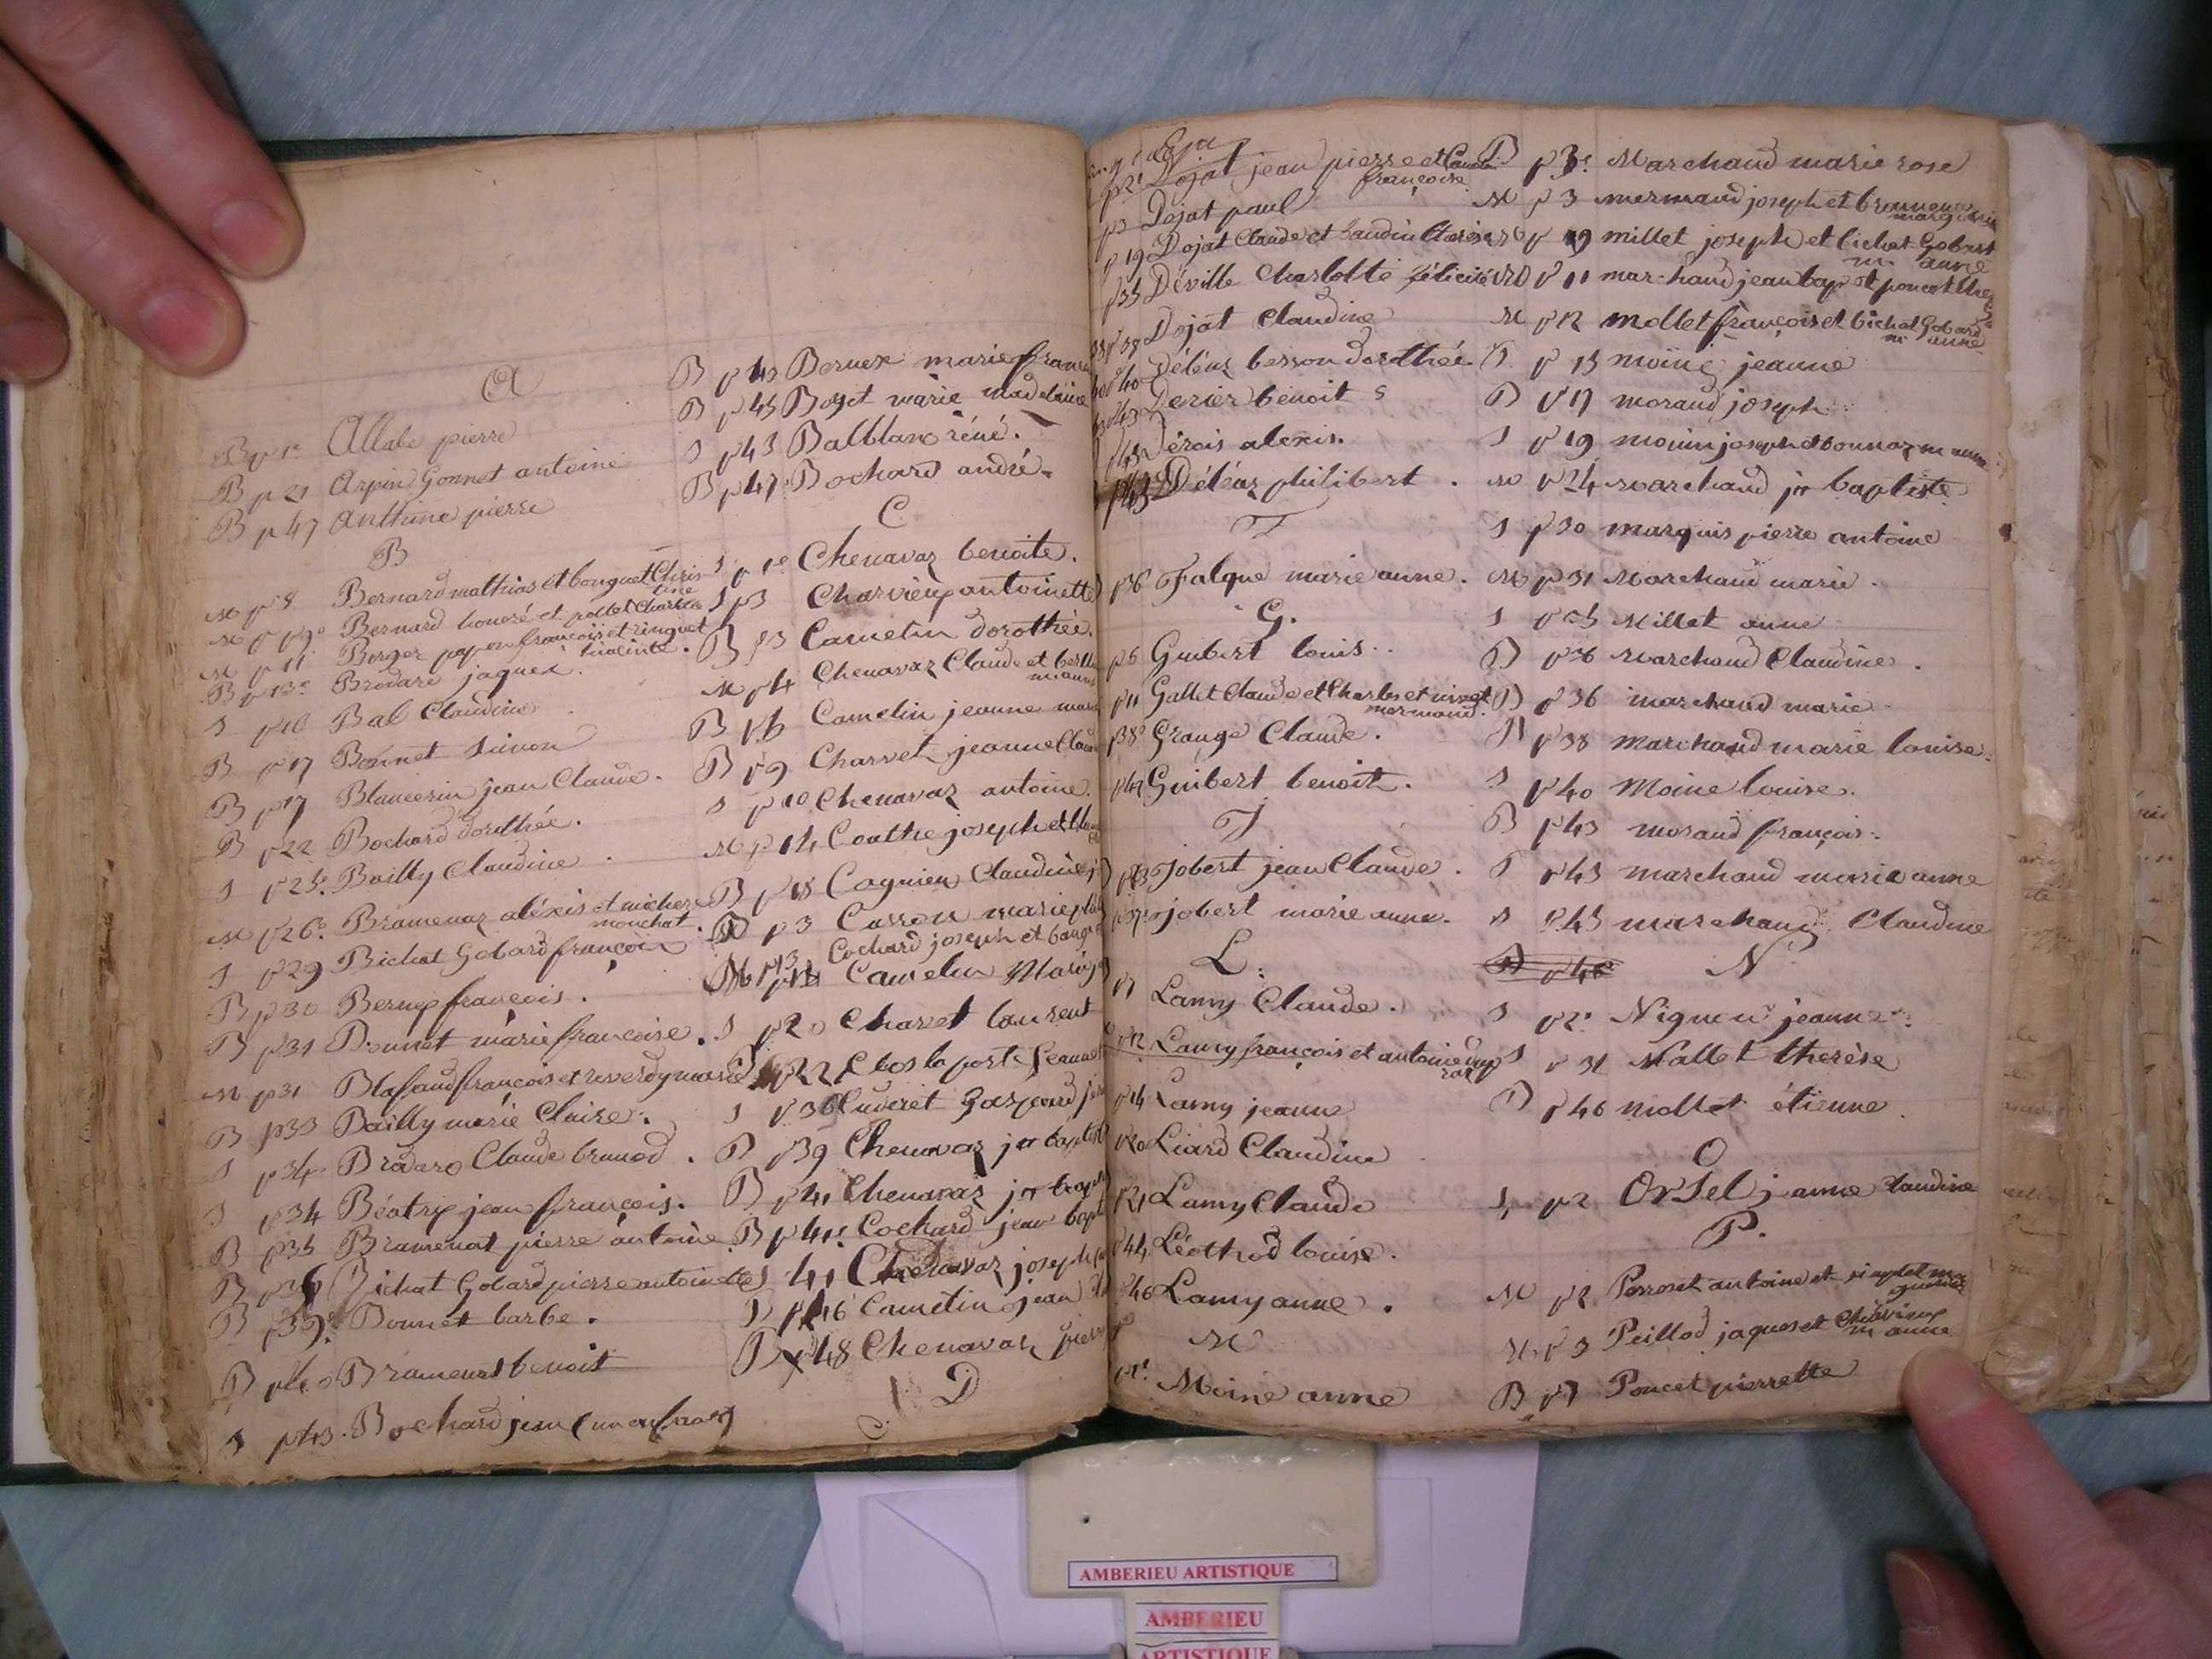 A
B p 1e Allabe pierre
B p 21 Arpin Gonnet antoine
B p 47 Anthime pierre
B
M p 8 Bernard mathias et bouguet Chris
tine
M p 9e Bernard honoré et pollet Charlo
M p 11 Berger papon françois et ringuet
hiacinte.
B p 13e Brodare jaques.
S p 16 Bal Claudine
B p 17 Bonnet Simon
B p 17 Blancerin jean Claude.
B p 22 Bochard dorothée.
S p 25e Bailly Claudine
M p 26e Bramenaz aléxis et micher
mouchat.
S p 29 Bichat Gobard françois
B p 30 Bernex françois.
B p 31 Bonnet marie françoise.
M p 31 Blafaud françois et reverdy marie
B p 33 Bailly marie Claire.
S p 34 Brodaro Claude brunod.
S p 34 Béatrix jean françois.
B p 35 Bramenat pierre antoine
B p 36 Bichat Gobard pierre antoine
B p 39e Bonnet barbe.
B p 40 Bramenat benoit
S p 43. Bochard jean (un enfant)
B p 43 Bernex marie fran
B p 45 Boget marie madelaine
S p 43 Balblanc réné.
B p 47 Bochard andré.
C
S p 1e Chenavaz benoite.
S p 3 Charvieux antoinette
B p 3 Camelin dorothée.
M p 4 Chenavaz Claude et
m anne
B p 6 Camelin jeanne
B p 9 Charvet jeanne Clau
S p 10 Chenavaz antoine.
M p 14 Coathe joseph et
B p 18 Cagnieu Claudine
B p 3 Casson marie
M p 13 Cochard joseph et
Camelin Marie
S p 20 Charet laurent
p 22 Clos la porte jeanne
S p 36 Cuveret Gaspard
B p 39 Chenavaz jn baptist
B p 41 Chenavaz jn bapt
B p 41e Cochard jean bapt
S 41 Chenavaz joseph
p 46 Camelin jean
B p 48 Chenavaz pierr
D
p 2e Dojat jean pierre et
françoise
p 3 Dojat paul
p 19 Dojat Claude et baudin therèse
p 35 Déville Charlotte félicité
p 39 Dojat Claudine
p 40 Déléaz besson dorothée.
p 43 Derier benoit
p 45 Dérois alexis.
Déléaz philibert.
F
p 36 Falque marie anne.
G.
p 6 Guibert louis.
p 11 Gallet Claude et Charles et
mermand.
p 38 Grange Claude.
p 42 Guibert benoit.
J
p 23 jobert jean Claude.
p 37 jobert marie anne.
L.
p 7 Lamy Claude.
p 12 Lamy françois et antoine dup
rat
p 14 Lamy jeanne
p 20 Liard Claudine
p 21 Lamy Claude
p 44 Léothod louise.
p 46 Lamy anne.
M
p 1e Moine anne
B p 3e Marchand marie rose
M p 3 mermand joseph et
M p 19 millet joseph et bichat Gobard
m. anne
M p 11 marchand jean bap et poncet
M p 12 mollet françois et bichat Gobard
m anne
S p 13 moine jeanne
B p 17 morand joseph
S p 19 moiin joseph et bonnaz m anne
M p 24 marchand jn baptiste
S p 30 marquis pierre antoine
M p 31 Marchand marie.
S p 35 Millet anne
B p 36 marchand Claudine.
B p 36 marchand marie
B p 38 marchand marie louise.
S p 40 Moine louise.
B p 43 morand françois.
S p 43 marchand marie anne
S p 45 marchand Claudine
N
S p 2e Nigueu jeanne.
S p 31 Nallet therèse
B p 46 mollet étienne.
O
S p 2 Orsel j anne claudine
P.
M p 2 Perroset antoine et
M p 3 Peillod jaques et Charvieux
m anne
B p 7 Poncet pierrette
AMBERIEU ARTISTIQUE
AMBERIEU
ARTISTIQUE